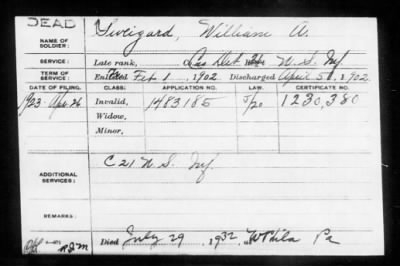 DEAD
NAME OF SOLDIER: Sweigard, William A.
SERVICE: Late rank, Cas Det 26 U. S. Inf
TERM OF SERVICE: Enlisted Feb 1, 1902 Discharged April 5, 1902
DATE OF FILING. CLASS. APPLICATION NO. LAW. CERTIFICATE NO.
1923 Apr 26 Invalid, 1483185 J/20 1230,380
Widow,
Minor,
ADDITIONAL SERVICES: C 21 U. S. Inf.
REMARKS:
Died July 29, 1932, at W Phila Pa